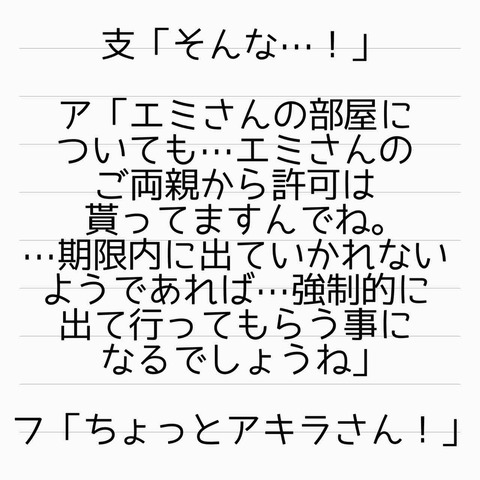 支「そんな…！」
ア「エミさんの部屋に
ついても…エミさんの
ご両親から許可は
貰ってますんでね。
…期限内に出ていかれない
ようであれば…強制的に
出て行ってもらう事に
なるでしょうね」
フ「ちょっとアキラさん！」